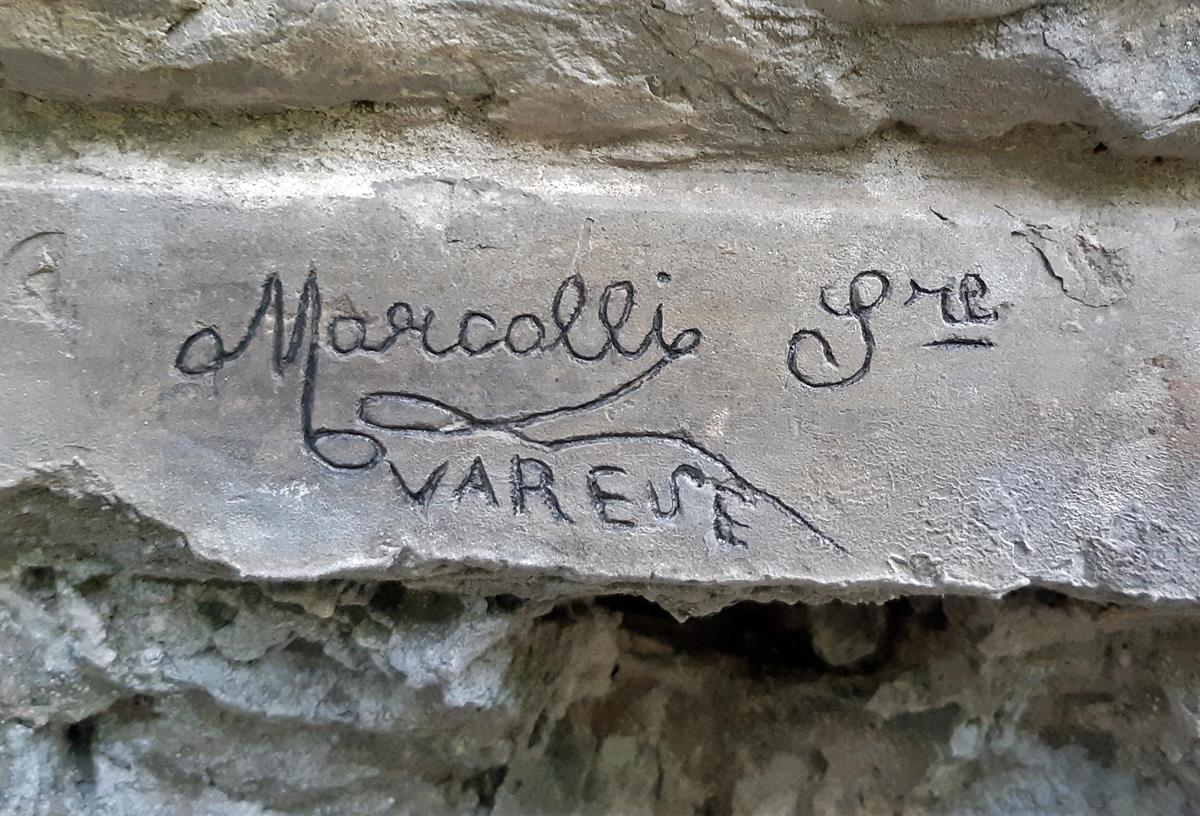 Marcolli Sre
VARESE